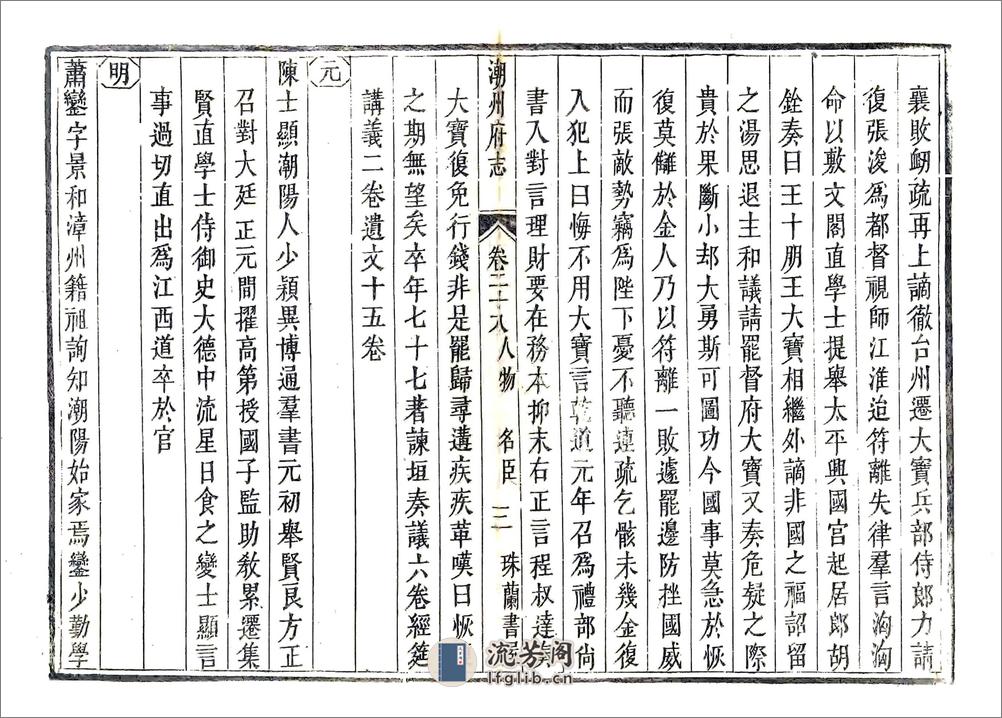 襄敗衂疏再上謫徹台州遷大寶兵部侍郎力請
復張浚爲都督視師江淮迨符離失律羣言洶洶
命以敷文閣直學士提舉太平興國宫起居郎胡
銓奏曰王十朋王大寶相繼外謫非國之福詔留
之湯思退主和議請罷督府大寶又奏危疑之際
貴於果斷小却大勇斯可圖功今國事莫急於恢
復莫讎於金人乃以符離一敗遽罷邊防挫國威
而張敵勢竊爲陛下憂不聽連疏乞骸未幾金復
入犯上曰悔不用大寶言乾道元年召爲禮部尙
書入對言理財要在務本抑末右正言程叔達
潮州府志 卷二十八 人物 名臣 三 珠蘭書屋
大寶復免行錢非是罷歸尋遘疾疾革嘆曰恢
之期無望矣卒年七十七著諫垣奏議六卷經筵
講義二卷遺文十五卷
元
陳士顯潮陽人少穎異博通羣書元初舉賢良方正
召對大廷正元間擢高第授國子監助敎累遷集
賢直學士侍御史大德中流星日食之變士顯言
事過切直出爲江西道卒於官
明
蕭鑾字景和漳州籍祖詢知潮陽始家焉鑾少勤學
流芳阁
lfglib.cn